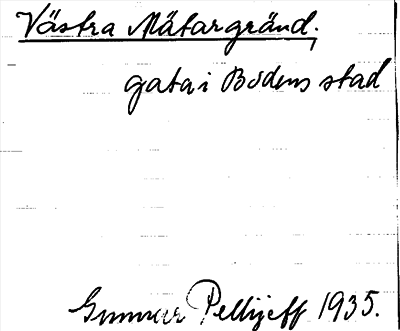 Västra Mätargränd.
gata i Bodens stad
Gunnar Pellijeff 1935.